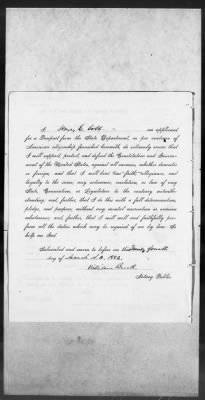 I, Henry C. Cobb an applicant
for a Passport from the State Department, as per evidence of
American citizenship furnished herewith, do solemnly swear that
I will support, protect, and defend the Constitution and Govern-
ment of the United States, against all enemies, whether domestic
or foreign, and that I will bear true faith, allegiance, and
loyalty to the same, any ordinance, resolution, or law of any
State, Convention, or Legislature to the contrary notwith-
standing; and, further, that I do this with a full determination,
pledge, and purpose, without any mental reservation or evasion
whatsoever; and, further, that I will well and faithfully per-
form all the duties which may be required of me by law. So
help me God.
Subscribed and sworn to before me this Twenty fourth
day of March A.D. 1882.
William
Notary Public